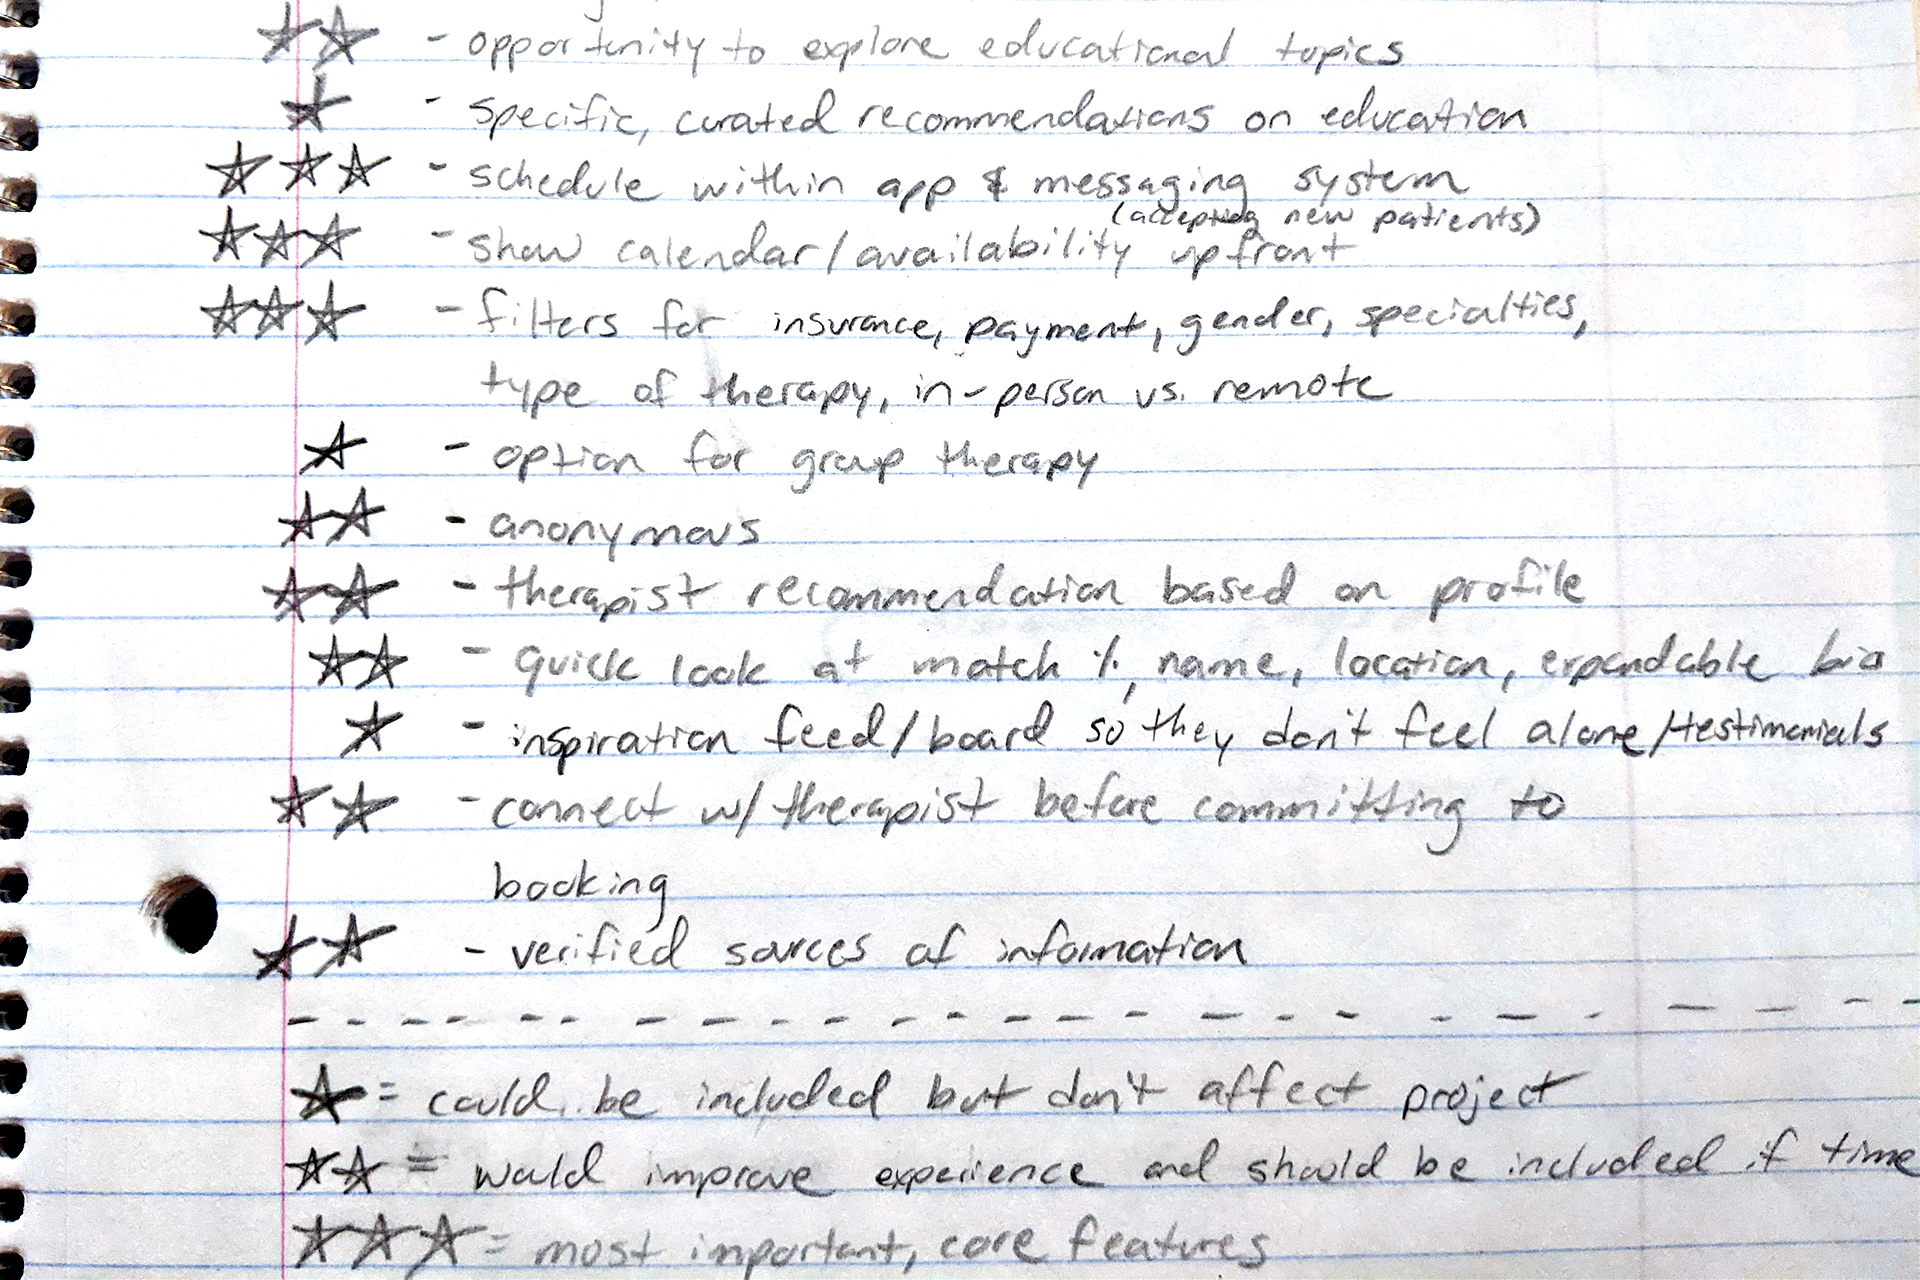 ☆☆ - opportunity to explore educational topics
☆ - specific, curated recommendations on education
☆☆☆ - schedule within app & messaging system
(accepting new patients)
☆☆☆ - show calendar/availability upfront
☆☆☆ - filters for insurance, payment, gender, specialties,
type of therapy, in-person vs. remote
☆ - option for group therapy
☆☆ - anonymous
☆☆ - therapist recommendation based on profile
☆☆ - quick look at match %, name, location, expandable bio
☆ - inspiration feed/board so they don't feel alone/testimonials
☆☆ - connect w/ therapist before committing to
booking
☆☆ - verified sources of information
☆ = could be included but don't affect project
☆☆ = would improve experience and should be included if time
☆☆☆ = most important, core features